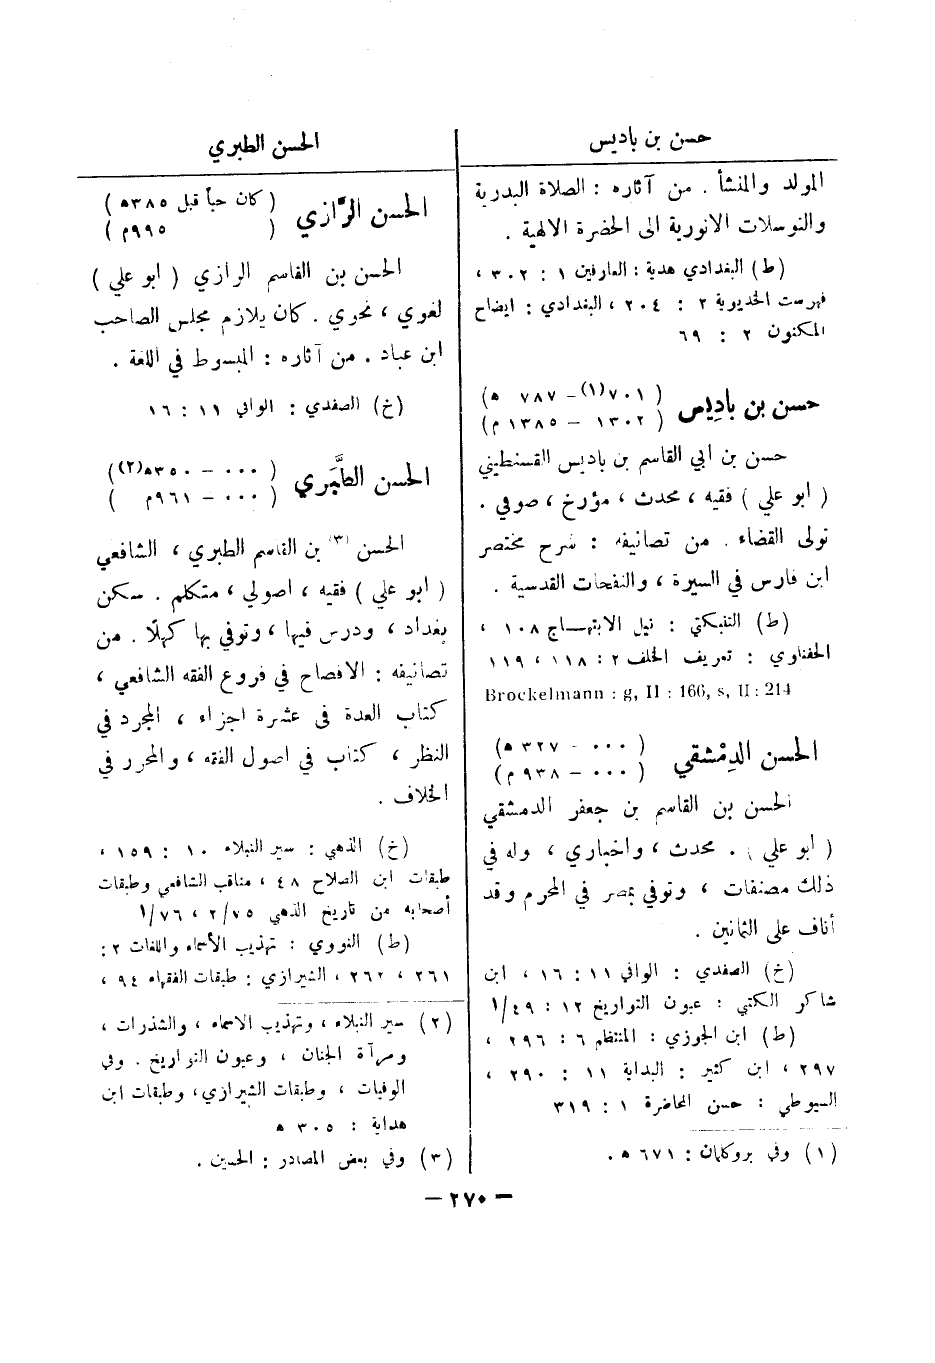 حسن بن باديس
المولد والمنشأ . من آثاره : الصلاة البدرية
والتوسلات الانورية الى الحضرة الالهية .
(ط) البغدادي هدية : العارفين ١ : ٣٠٢ ،
فهرست الخديوية ٢ : ٢٠٤ ، البغدادي : ايضاح
المكنون ٢ : ٦٩
حسن بن باديس
( ٧٠١(١) - ٧٨٧ ه )
( ١٣٠٢ - ١٣٨٥ م )
حسن بن أبي القاسم بن باديس القسنطيني
( ابو علي ) فقيه ، محدث ، مؤرخ ، صوفي .
تولى القضاء . من تصانيفه : شرح مختصر
ابن فارس في السيرة ، والنفحات القدسية .
(ط) التنبكتي : نيل الابتهاج ١٠٨ ،
الحفناوي : تعريف الخلف ٢ : ١١٨ ، ١١٩
Brockelmann : g, II : 166, s, II : 214
الحسن الدِمْشقي
( ٠٠٠ - ٣٢٧ ه )
( ٠٠٠ - ٩٣٨ م )
الحسن بن القاسم بن جعفر الدمشقي
( ابو علي ) . محدث ، واخباري ، وله في
ذلك مصنفات ، وتوفي بمصر في المحرم وقد
أناف على الثمانين .
(خ) الصفدي : الوافي ١١ : ١٦ ، ابن
شاكر الكتبي : عيون التواريخ ١٢ : ٤٩/١
(ط) ابن الجوزي : المنتظم ٦ : ٢٩٦ ،
٢٩٧ ، ابن كثير : البداية ١١ : ٢٩٠ ،
السيوطي : حسن المحاضرة ١ : ٣١٩
(١) وفي بروكلمان : ٦٧١ ه .
الحسن الطبري
الحسن الرَّازي
( كان حياً قبل ٣٨٥ه )
( ٩٩٥م )
الحسن بن القاسم الرازي ( ابو علي )
لغوي ، نحوي . كان يلازم مجلس الصاحب
ابن عباد . من آثاره : المبسوط في اللغة .
(خ) الصفدي : الوافي ١١ : ١٦
الحسن الطَّبَري
( ٠٠٠ - ٣٥٠ه(٢) )
( ٠٠٠ - ٩٦١م )
الحسن (٣) بن القاسم الطبري ، الشافعي
( ابو علي ) فقيه ، اصولي ، متكلم . سكن
بغداد ، ودرس فيها ، وتوفي بها كهلًا . من
تصانيفه : الافصاح في فروع الفقه الشافعي ،
كتاب العدة في عشرة اجزاء ، المجرد في
النظر ، كتاب في اصول الفقه ، والمحرر في
الخلاف .
(خ) الذهبي : سير النبلاء ١٠ : ١٥٩ ،
طبقات ابن الصلاح ٤٨ ، مناقب الشافعي وطبقات
أصحابه من تاريخ الذهبي ٢/٧٥ ، ١/٧٦
(ط) النووي : تهذيب الأسماء واللغات ٢ :
٢٦١ ، ٢٦٢ ، الشيرازي : طبقات الفقهاء ٩٤ ،
(٢) سير النبلاء ، وتهذيب الاسماء ، والشذرات ،
ومرآة الجنان ، وعيون التواريخ . وفي
الوفيات ، وطبقات الشيرازي، وطبقات ابن
هداية : ٣٠٥ ه
(٣) وفي بعض المصادر : الحسين .
— ٢٧٠ —